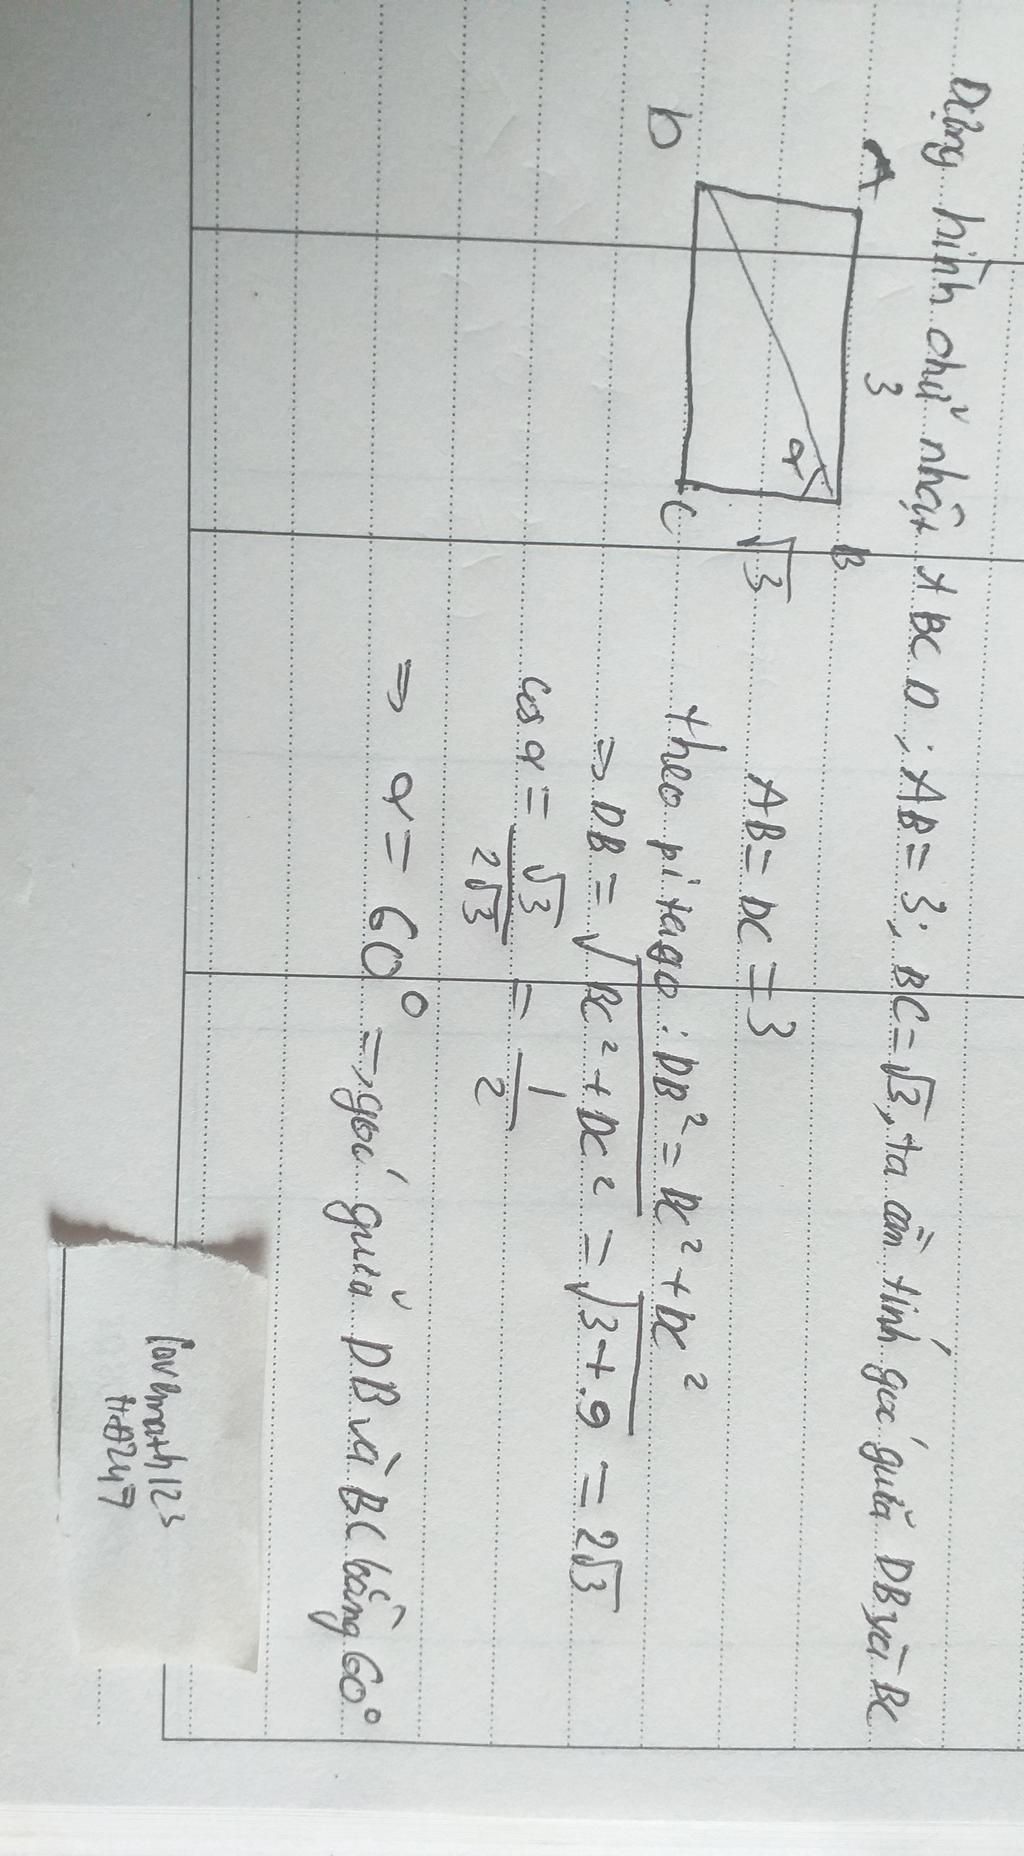 Dựng hình chữ nhật ABCD; AB = 3; BC = √3, ta cần tính góc giữa DB và BC
A 3 B
√3
α
D C
AB = DC = 3
theo pitago: DB² = BC² + DC²
⇒ DB = √(BC² + DC²) = √(3+9) = 2√3
cos α = √3/2√3 = 1/2
⇒ α = 60° ⇒ góc giữa DB và BC bằng 60°
lovemath123